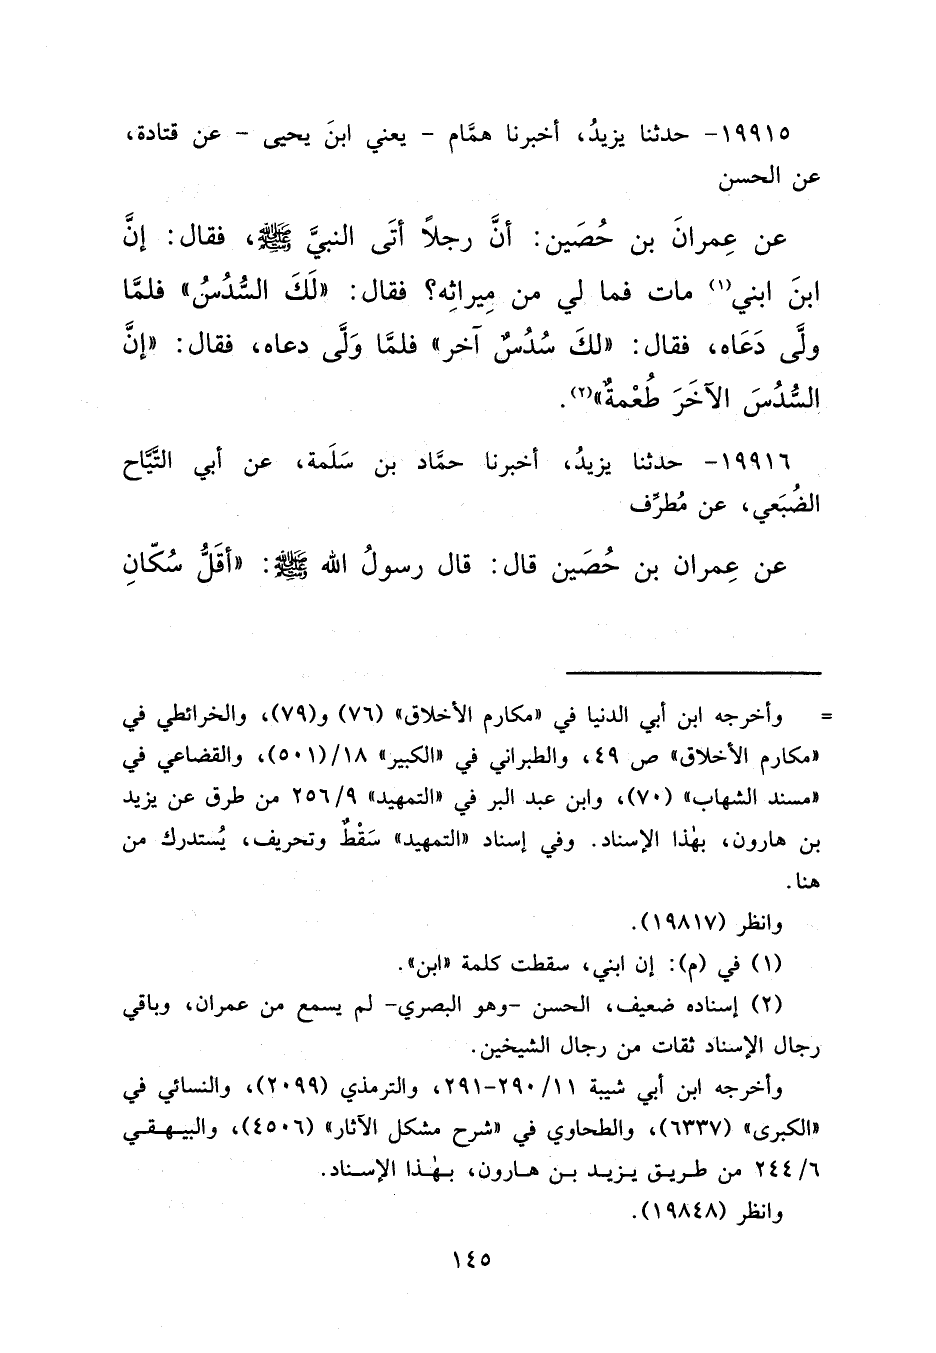 ١٩٩١٥- حدثنا يزيدُ، أخبرنا همَّام - يعني ابنَ يحيى - عن قتادة،
عن الحسن
عن عِمرانَ بن حُصَين: أنَّ رجلاً أتَى النبيَّ ﷺ، فقال: إنَّ
ابنَ ابني(١) مات فما لي من مِيراثِه؟ فقال: «لَكَ السُّدُسُ» فلمَّا
ولَّى دَعَاه، فقال: «لكَ سُدُسٌ آخر» فلمَّا وَلَّى دعاه، فقال: «إنَّ
السُّدُسَ الآخَرَ طُعْمةٌ»(٢).
١٩٩١٦- حدثنا يزيدُ، أخبرنا حمَّاد بن سَلَمة، عن أبي التَّيَّاح
الضُبَعي، عن مُطرِّف
عن عِمران بن حُصَين قال: قال رسولُ الله ﷺ: «أقَلُّ سُكّانِ
= وأخرجه ابن أبي الدنيا في «مكارم الأخلاق» (٧٦) و(٧٩)، والخرائطي في
«مكارم الأخلاق» ص ٤٩، والطبراني في «الكبير» ١٨/(٥٠١)، والقضاعي في
«مسند الشهاب» (٧٠)، وابن عبد البر في «التمهيد» ٢٥٦/٩ من طرق عن يزيد
بن هارون، بهٰذا الإسناد. وفي إسناد «التمهيد» سَقْطٌ وتحريف، يُستدرك من
هنا.
وانظر (١٩٨١٧).
(١) في (م): إن ابني، سقطت كلمة «ابن».
(٢) إسناده ضعيف، الحسن -وهو البصري- لم يسمع من عمران، وباقي
رجال الإسناد ثقات من رجال الشيخين.
وأخرجه ابن أبي شيبة ١١/ ٢٩٠-٢٩١، والترمذي (٢٠٩٩)، والنسائي في
«الكبرى» (٦٣٣٧)، والطحاوي في «شرح مشكل الآثار» (٤٥٠٦)، والبيهقي
٦/ ٢٤٤ من طريق يزيد بن هارون، بهٰذا الإسناد.
وانظر (١٩٨٤٨).
١٤٥